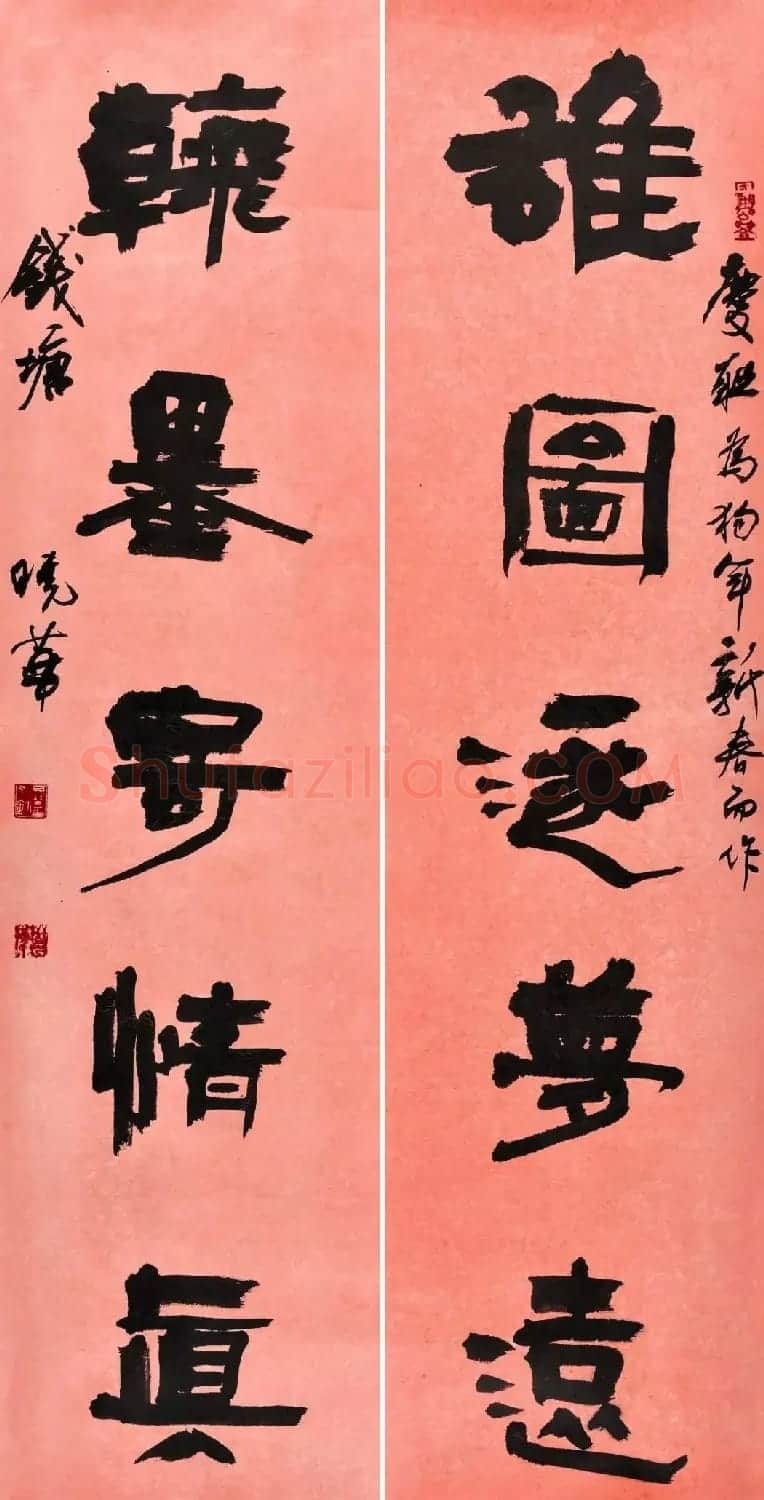 慶联為狗年新春而作
雄圖逐夢遠
翰墨寄情眞
錢塘 曉華
Shufaziliao.COM